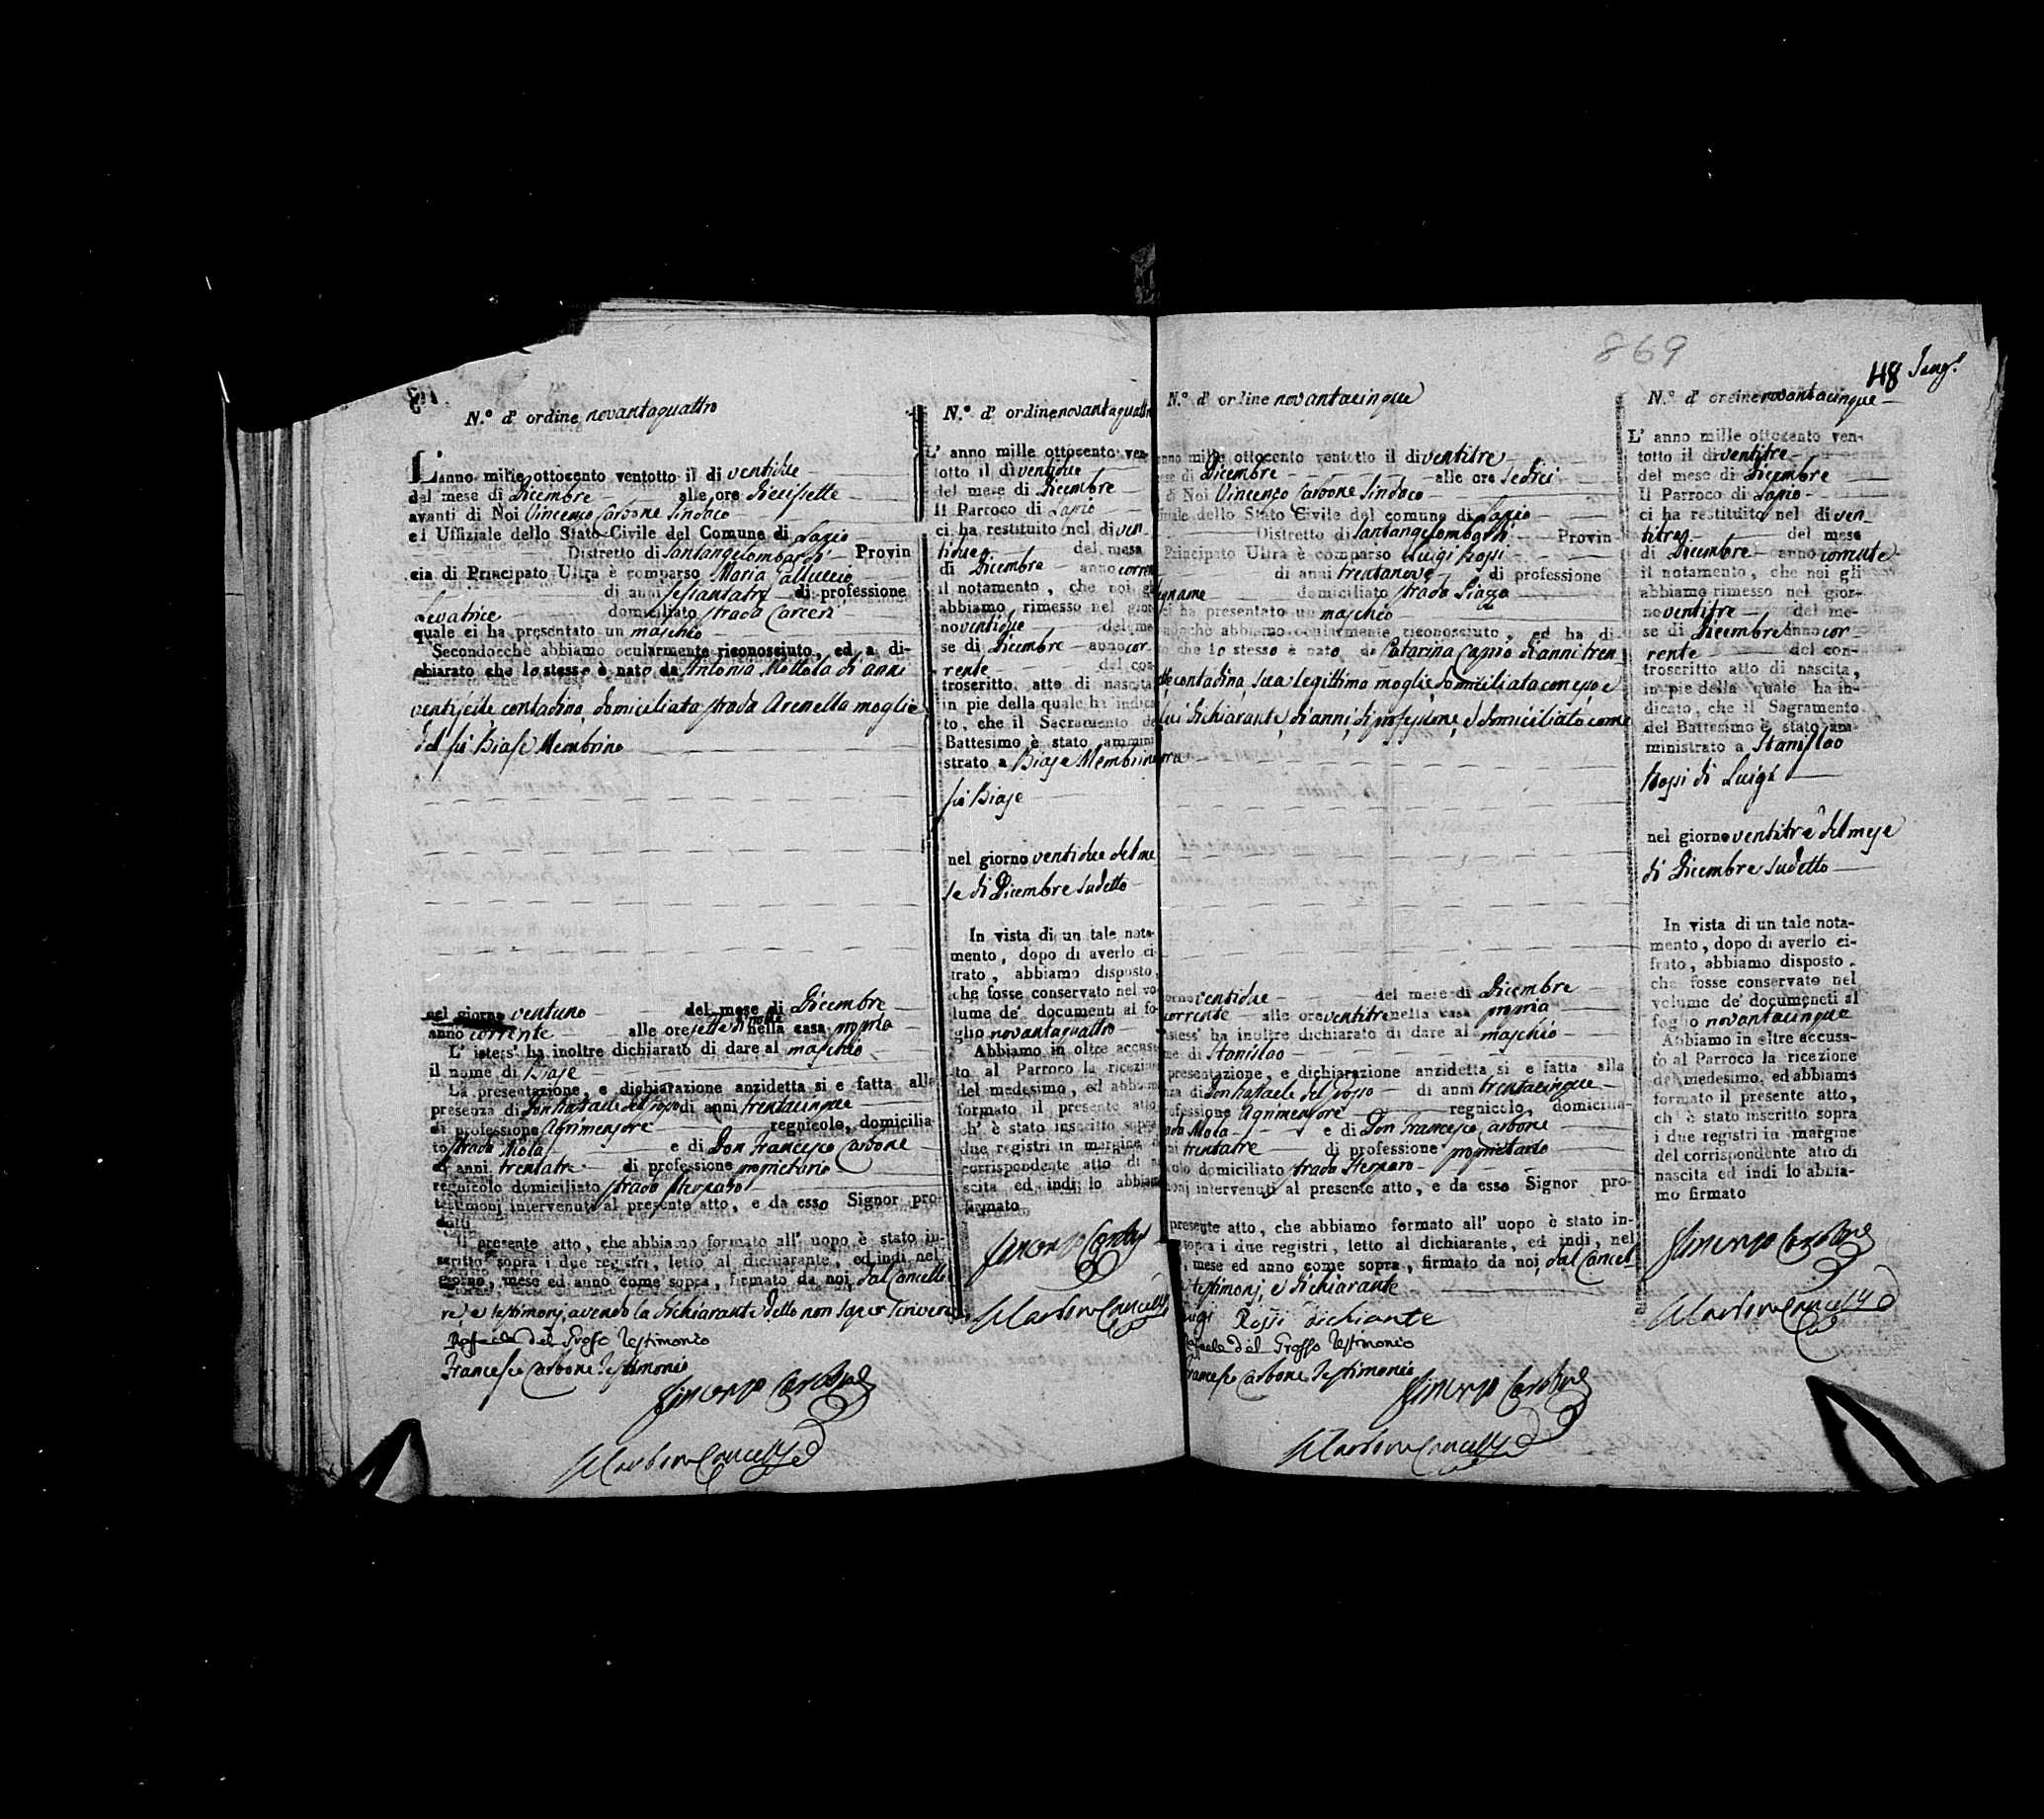 N.º d' ordine novantaquattro
L'anno mille ottocento ventotto il di ventidue
del mese di Dicembre alle ore Diecissette
avanti di Noi Vincenzo Carbone Sindaco
el Uffiziale dello Stato Civile del Comune di Lapio
Distretto di Santangelombardi Provin
cia di Principato Ultra è comparso Maria Galluccio
di anni sessantatre di professione
Levatrice domiciliato strada Carceri
quale ci ha presentato un maschio
Secondocchè abbiamo ocularmente riconosciuto, ed a di-
chiarato che lo stesso è nato da Antonia Mottola di anni
ventisette contadina domiciliata strada Arenella moglie
del fù Biase Membrino
nel giorno ventuno del mese di Dicembre
anno corrente alle ore sette di notte nella casa propria
L' istess' ha inoltre dichiarato di dare al maschio
il nome di Biase
La presentazione, e dichiarazione anzidetta si e fatta alla
presenza di Don Raffaele del Grosso di anni trentacinque
di professione Agrimensore regnicolo, domicilia-
to strada Mola e di Don Francesco Carbone
di anni trentatre di professione proprietario
regnicolo domiciliato strada
testimonj intervenuti al presente atto, e da esso Signor pro-
dotti
Il presente atto, che abbiamo formato all' uopo è stato in-
scritto sopra i due registri, letto al dichiarante, ed indi, nel
giorno, mese ed anno come sopra, firmato da noi, dal Cancellie
re, e testimonj, avendo la dichiarante detto non saper scrivere
Raffaele del Grosso Testimonio
Francesco Carbone Testimonio
Vincenzo Carbone
N.º d' ordine novantaquattro
L' anno mille ottocento ven-
totto il di ventidue
del mese di Dicembre
Il Parroco di Lapio
ci ha restituito nel di ven
tidue del mese
di Dicembre anno corren
il notamento, che noi gli
abbiamo rimesso nel gior
no ventidue del me
se di Dicembre anno cor-
rente del con
troscritto atto di nascita
in pie della quale ha indica
to, che il Sacramento de
Battesimo è stato ammini
strato a Biase Membrino
fù Biase
nel giorno ventidue del me
se di Dicembre sudetto
In vista di un tale nota-
mento, dopo di averlo ci
frato, abbiamo disposto,
che fosse conservato nel vo
lume de' documenti al fo
glio novantaquattro
Abbiamo in oltre accusa
to al Parroco la ricezion
del medesimo, ed abbiam
formato il presente atto
ch' è stato inscritto sopra
due registri in margine d
corrispondente atto di na
scita ed indi lo abbiam
firmato
Vincenzo Carbone
869
48
N.º d' ordine novantacinque
anno mille ottocento ventotto il di ventitre
se di Dicembre alle ore Sedici
di Noi Vincenzo Carbone Sindaco
ziale dello Stato Civile del comune di Lapio
Distretto di Santangelombardi Provin
Principato Ultra è comparso Luigi Rossi
di anni trentanove di professione
gname domiciliato strada Piazza
ci ha presentato un maschio
ndocche abbiamo ocularmente riconosciuto, ed ha di-
to che lo stesso è nato da Catarina Caprio di anni tren
contadina, sua legittima moglie, domiciliata con esso e
lui dichiarante, di anni, di professione, e domiciliato come
pra
orno ventidue del mese di Dicembre
corrente alle ore ventitre nella casa propria
istess' ha inoltre dichiarato di dare al maschio
me di Stanislao
presentazione, e dichiarazione anzidetta si e fatta alla
nza di Don Raffaele del Grosso di anni trentacinque
ofessione Agrimensore regnicolo, domicilia-
ada Mola e di Don Francesco Carbone
ni trentatre di professione proprietario
colo domiciliato strada
monj intervenuti al presente atto, e da esso Signor pro-
presente atto, che abbiamo formato all' uopo è stato in-
sopra i due registri, letto al dichiarante, ed indi, nel
, mese ed anno come sopra, firmato da noi, dal Cancel
testimonj, e dichiarante
uigi Rossi dichiante
affaele del Grosso Testimonio
Francesco Carbone Testimonio
Vincenzo Carbone
N.º d' ordine novantacinque
L' anno mille ottocento ven-
totto il di ventitre
del mese di Dicembre
Il Parroco di Lapio
ci ha restituito nel di ven-
titre del mese
di Dicembre anno corrente
il notamento, che noi gli
abbiamo rimesso nel gior-
no ventitre del me-
se di Dicembre anno cor-
rente del con-
troscritto atto di nascita,
in pie della quale ha in-
dicato, che il Sagramento
del Battesimo è stato am-
ministrato a Stanislao
Rossi di Luigi
nel giorno ventitre del mese
di Dicembre sudetto
In vista di un tale nota-
mento, dopo di averlo ci-
frato, abbiamo disposto,
che fosse conservato nel
volume de' documeneti al
foglio novantacinque
Abbiamo in oltre accusa-
to al Parroco la ricezione
del medesimo, ed abbiamo
formato il presente atto,
ch' è stato inscritto sopra
i due registri in margine
del corrispondente atto di
nascita ed indi lo abbia-
mo firmato
Vincenzo Carbone